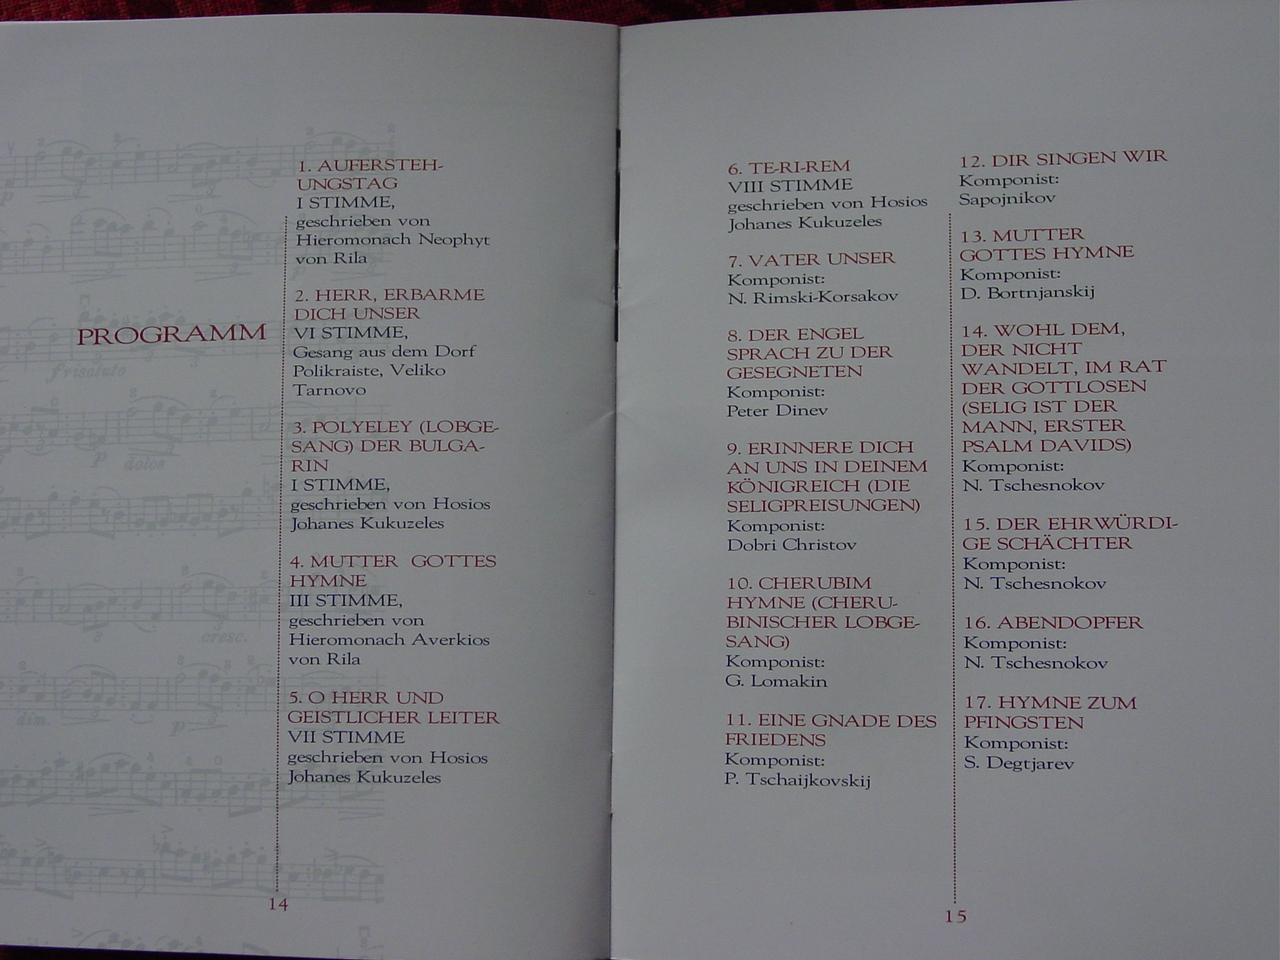 PROGRAMM
1. AUFERSTEH-
UNGSTAG
I STIMME,
geschrieben von
Hieromonach Neophyt
von Rila
2. HERR, ERBARME
DICH UNSER
VI STIMME,
Gesang aus dem Dorf
Polikraiste, Veliko
Tarnovo
3. POLYELEY (LOBGE-
SANG) DER BULGA-
RIN
I STIMME,
geschrieben von Hosios
Johanes Kukuzeles
4. MUTTER GOTTES
HYMNE
III STIMME,
geschrieben von
Hieromonach Averkios
von Rila
5. O HERR UND
GEISTLICHER LEITER
VII STIMME
geschrieben von Hosios
Johanes Kukuzeles
frisoluto
p
dolce
cresc.
dim.
p
14
6. TE-RI-REM
VIII STIMME
geschrieben von Hosios
Johanes Kukuzeles
7. VATER UNSER
Komponist:
N. Rimski-Korsakov
8. DER ENGEL
SPRACH ZU DER
GESEGNETEN
Komponist:
Peter Dinev
9. ERINNERE DICH
AN UNS IN DEINEM
KÖNIGREICH (DIE
SELIGPREISUNGEN)
Komponist:
Dobri Christov
10. CHERUBIM
HYMNE (CHERU-
BINISCHER LOBGE-
SANG)
Komponist:
G. Lomakin
11. EINE GNADE DES
FRIEDENS
Komponist:
P. Tschaijkovskij
12. DIR SINGEN WIR
Komponist:
Sapojnikov
13. MUTTER
GOTTES HYMNE
Komponist:
D. Bortnjanskij
14. WOHL DEM,
DER NICHT
WANDELT, IM RAT
DER GOTTLOSEN
(SELIG IST DER
MANN, ERSTER
PSALM DAVIDS)
Komponist:
N. Tschesnokov
15. DER EHRWÜRDI-
GE SCHÄCHTER
Komponist:
N. Tschesnokov
16. ABENDOPFER
Komponist:
N. Tschesnokov
17. HYMNE ZUM
PFINGSTEN
Komponist:
S. Degtjarev
15